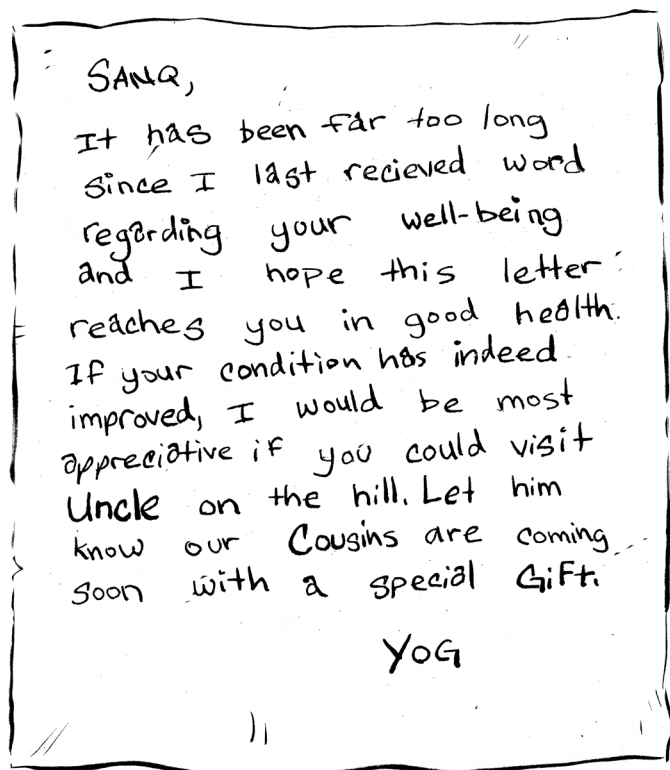 SANQ,
It has been far too long
since I last recieved word
regarding your well-being
and I hope this letter
reaches you in good health.
If your condition has indeed
improved, I would be most
appreciative if you could visit
Uncle on the hill. Let him
know our Cousins are coming
soon with a special Gift.
YOG